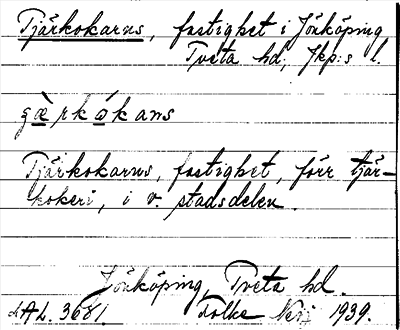 Tjärkokarns, fastighet i Jönköping
Tveta hd, Jkp:s l.
gæ̀rkókans
Tjärkokarns, fastighet, förr tjär-
kokeri, i v. stadsdelen.
Jönköping, Tveta hd.
LAL. 3681. Folke 1939.